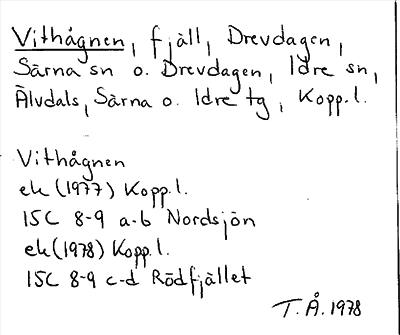 Vithågnen, fjäll, Drevdagen,
Särna sn o. Drevdagen, Idre sn,
Älvdals, Särna o. Idre tg, Kopp.l.
Vithågnen
ek (1977) Kopp.l.
15C 8-9 a-b Nordsjön
ek (1978) Kopp.l.
15C 8-9 c-d Rödfjället
T.Å. 1978